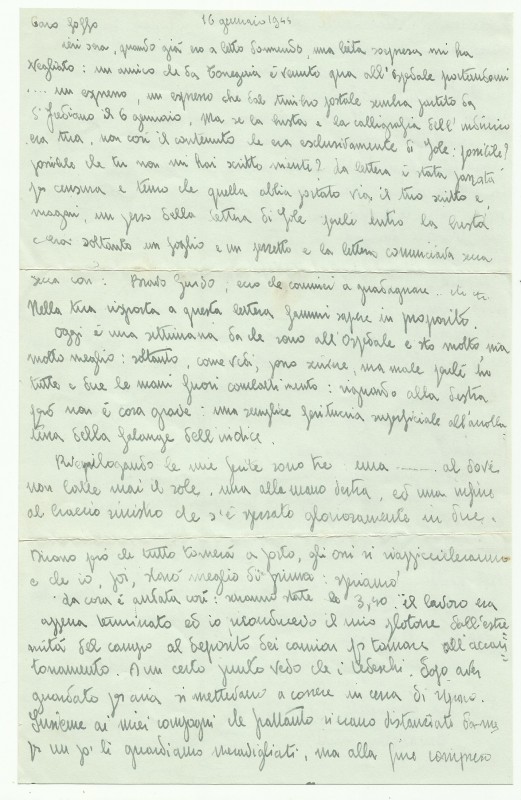 Caro Goffo 16 gennaio 1944
ieri sera, quando già ero a letto dormendo, una lieta sorpresa mi ha
svegliato: un amico che da è venuto qua all'ospedale portandomi
... un espresso, un espresso che dal timbro postale sembra partito da
S. Frediano il 6 gennaio, Ma se la busta e la calligrafia dell'indirizzo
era tua, non così il contenuto che era esclusivamente di Jole: possibile?
possibile che tu non mi hai scritto niente? La lettera è stata passata
per censura e temo che quella abbia portato via il tuo scritto e,
magari, un pezzo della lettera di Jole perché entro la busta
c'era soltanto un foglio e un pezzetto e la lettera cominciava secca
secca con: Bravo Guido, ecco che cominci a guadagnare..
Nella tua risposta a questa lettera fammi sapere in proposito.
Oggi è una settimana da che sono all'Ospedale e sto molto ma
molto meglio: soltanto, come vedi, posso scrivere, ma male perché ho
tutte e due le mani fuori combattimento: riguardo alla destra
però non è cosa grave: una semplice ferituccia superficiale all'
della falange dell'indice.
Riepilogando le mie ferite sono tre: una ........ al dove
non batte mai il sole, una alla mano destra, ed una infine
al braccio sinistro che s'è spezzato gloriosamente in due.
Dicono però che tutto tornerà a posto, gli ossi si riappiccicheranno
e che io, poi, starò meglio di prima: speriamo!
La cosa è andata così: saranno state le 3,40. il lavoro era
appena terminato ed io riconducevo il mio plotone dall'estre
mità del campo al deposito dei camion per tornare all'accan
tonamento. A un certo punto vedo che i tedeschi. Dopo aver
guardato per aria si mettevano a correre in cerca di riparo.
Insieme ai miei compagni che frattanto si erano distanziati da me
per un po' li guardiamo meravigliati, ma alla fine compreso